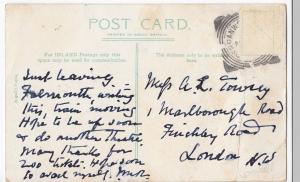 POST CARD.
PRINTED IN GREAT BRITAIN
For INLAND Postage only this space may be used for communication.
The address to be written here.
Just leaving
Falmouth writing
this, train moving
Hope to be up soon
& do another theatre
Many thanks for
200 tickets. Hope soon
to avail myself.
Miss A. L. Towsey
1 Marlborough Road
Finchley Road
London N.W